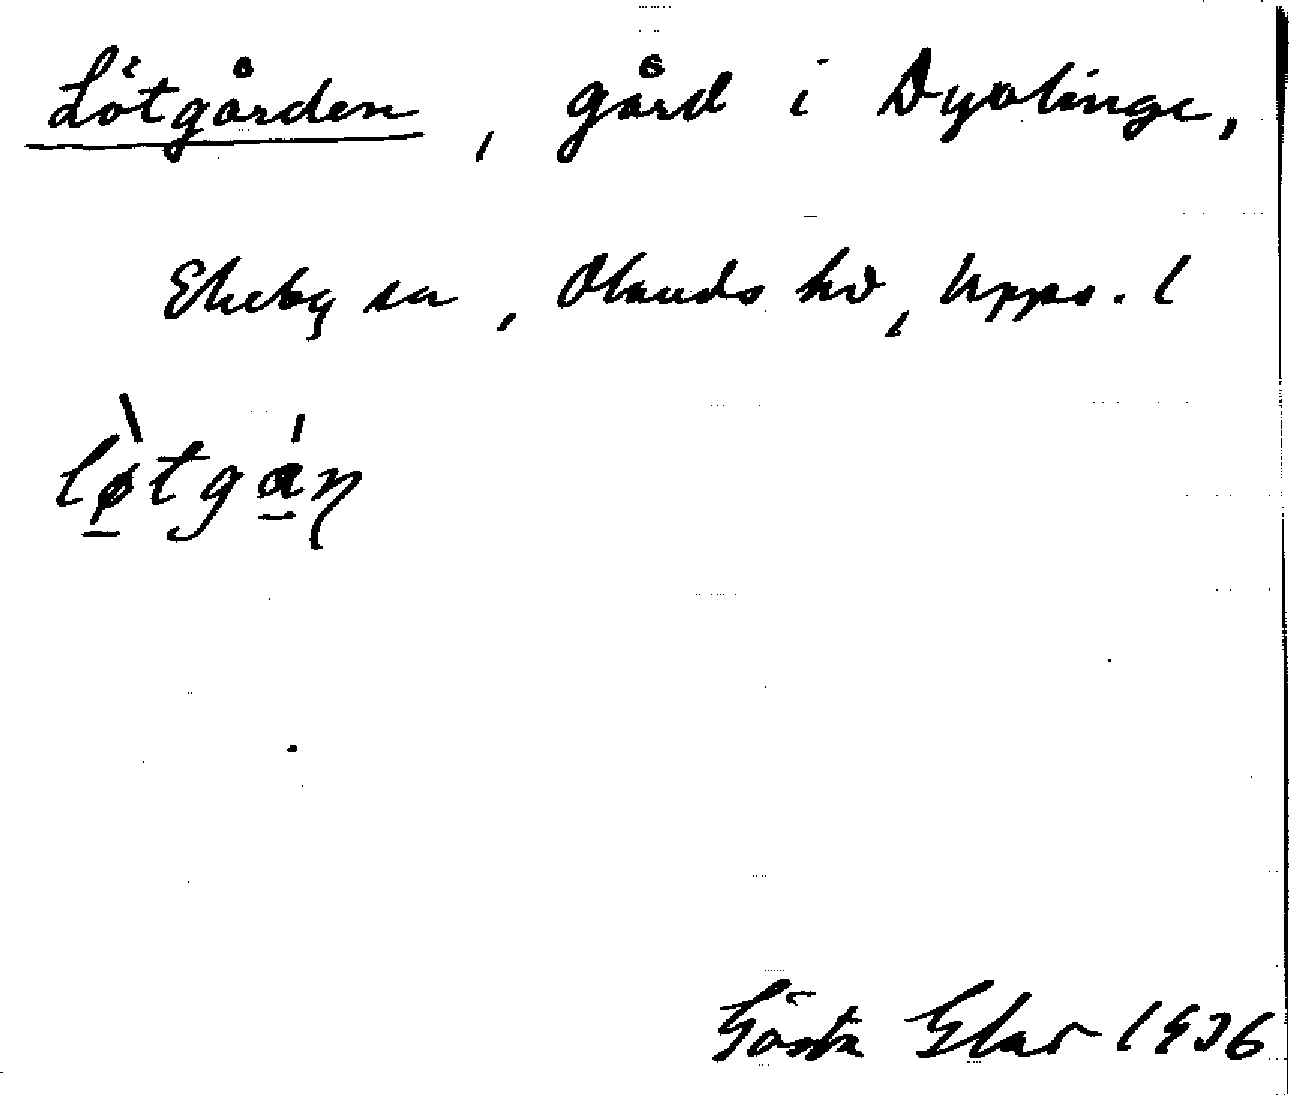 Lötgården, gård i Dyvlinge,
Ekeby sn, Olands hd, Upps. l
lø̀tgán
Gösta 1936